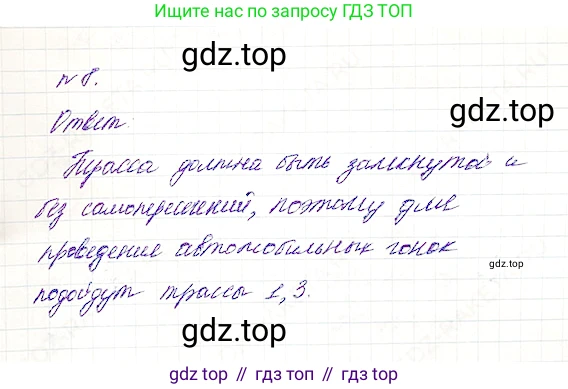 Ищите нас по запросу ГДЗ ТОП
gdz.top
№ 8.
gdz.top
Ответ:
Трасса должна быть замкнута и
без самопересечений, поэтому для
проведение автомобильных гонок
gdz.top
подойдут трассы 1, 3.
gdz.top
gdz.top // гдз топ // гдз.топ